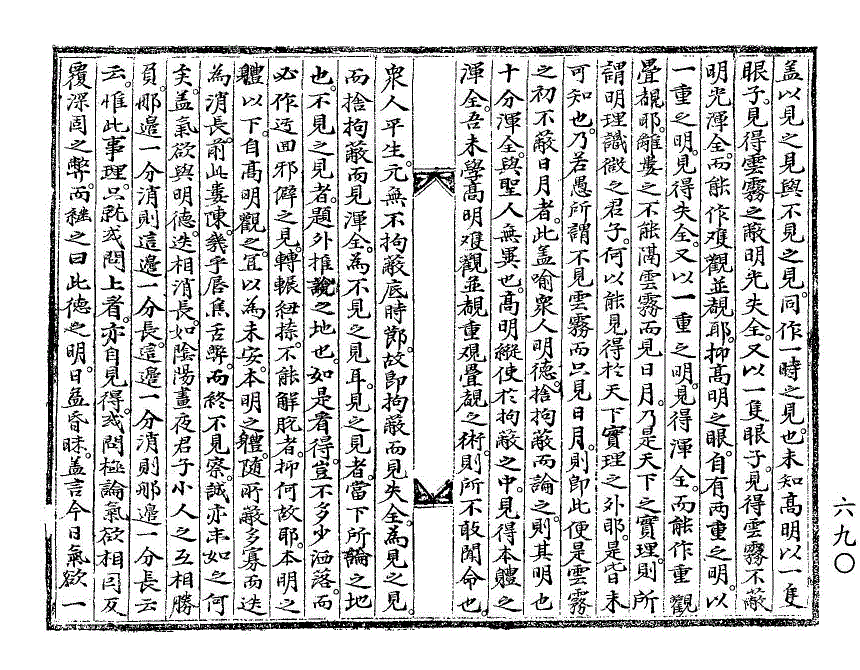 盖以見之見與不見之見。同作一時之見也。未知高明以一隻
眼子。見得雲霧之蔽明光失全。又以一隻眼子。見得雲霧不蔽
明光渾全。而能作雙觀並覩耶。抑高明之眼。自有两重之明。以
一重之明。見得失全。又以一重之明。見得渾全。而能作重觀
疊覩耶。離婁之不能隔雲霧而見日月。乃是天下之實理。則所
謂明理識微之君子。何以能見得於天下實理之外耶。是皆未
可知也。乃若愚所謂不見雲霧而只見日月。則即此便是雲霧
之初不蔽日月者。此盖喻衆人明德。捨拘蔽而論之。則其明也
十分渾全。與聖人無異也。高明縱使於拘蔽之中。見得本體之
渾全。吾未學高明雙觀並覩重觀疊覩之術。則所不敢聞命也。
衆人平生。元無不拘蔽底時節。故即拘蔽而見失全。為見之見。
而捨拘蔽而見渾全。為不見之見耳。見之見者。當下所論之地
也。不見之見者。題外推說之地也。如是看得。豈不多少洒落。而
必作迂回邪僻之見。轉輾紐捺。不能解脫者。抑何故耶。本明之
體以下。自高明觀之。宜以為未安。本明之體。隨所蔽多寡而迭
為消長。前此婁陳。幾乎唇焦舌弊。而終不見察。誠亦末如之何
矣。盖氣欲與明德。迭相消長。如陰陽晝夜君子小人之互相勝
負。那邊一分消則這邊一分長。這邊一分消則那邊一分長云
云。惟此事理。只就或問上看。亦自見得。或問極論氣欲相因反
覆深固之弊。而継之曰此德之明。日益昏昧。盖言今日氣欲一
六九〇